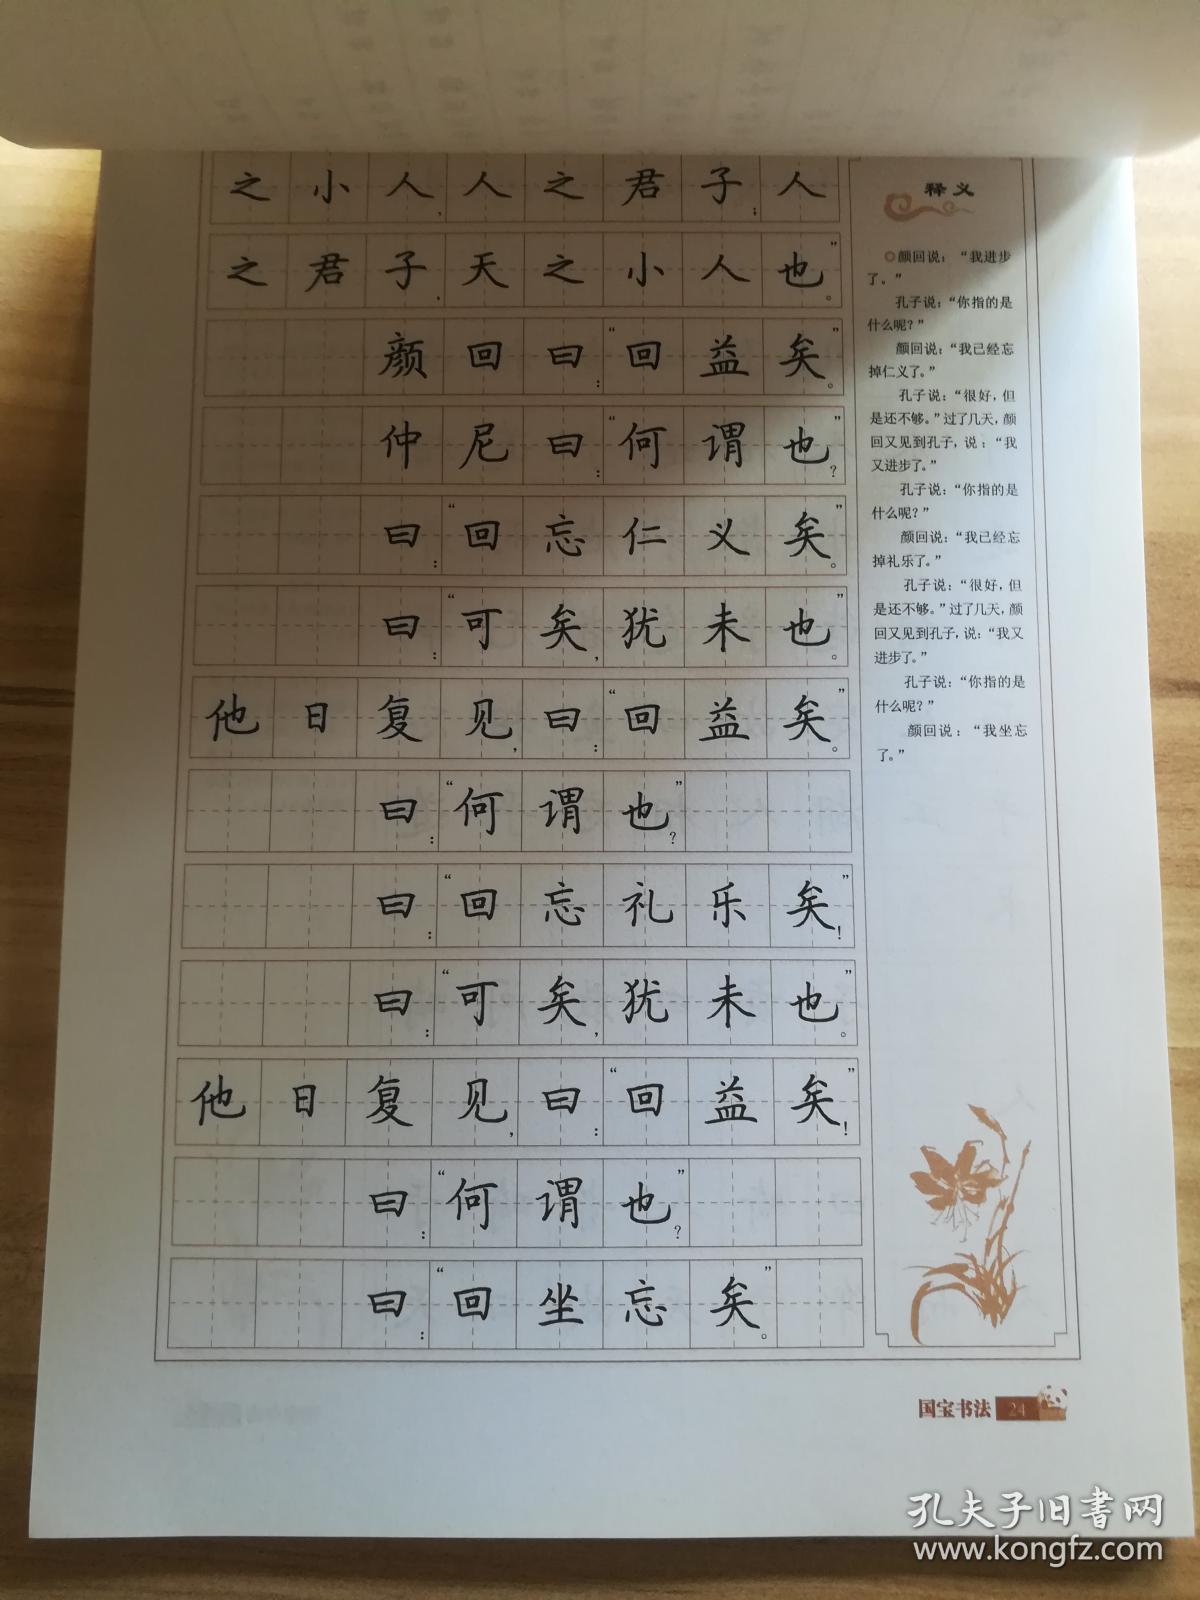 之小人，人之君子；人
之君子，天之小人也”。
颜回曰：“回益矣。”
仲尼曰：“何谓也？”
曰：“回忘仁义矣。”
曰：“可矣，犹未也。”
他日复见，曰：“回益矣。”
曰：“何谓也？”
曰：“回忘礼乐矣！”
曰：“可矣，犹未也。”
他日复见，曰：“回益矣！”
曰：“何谓也？”
曰：“回坐忘矣。”
释义
颜回说：“我进步
了。”
孔子说：“你指的是
什么呢？”
颜回说：“我已经忘
掉仁义了。”
孔子说：“很好，但
是还不够。”过了几天，颜
回又见到孔子，说：“我
又进步了。”
孔子说：“你指的是
什么呢？”
颜回说：“我已经忘
掉礼乐了。”
孔子说：“很好，但
是还不够。”过了几天，颜
回又见到孔子，说：“我又
进步了。”
孔子说：“你指的是
什么呢？”
颜回说：“我坐忘
了。”
国宝书法 24
孔夫子旧书网
www.kongfz.com